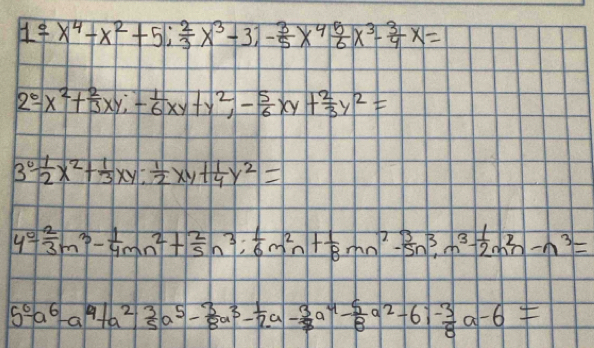 1º- x⁴-x²+5; 2/3 x³-3; -3/5 x⁴ 5/6 x³- 3/4 x=
2º- x²+2/3 xy; -1/6 xy+y²; -5/6 xy+2/3 y²=
3º- 1/2 x²+1/3 xy; 1/2 xy+1/4 y²=
4º- 2/3 m³-1/4 mn²+2/5 n³; 1/6 m²n+1/8 mn²-3/5 n³; m³-1/2 m²n-n³=
5º a⁶-a⁴+a² 3/5 a⁵-3/8 a³-1/2 a-3/8 a⁴-5/8 a²-6; -3/8 a-6 =